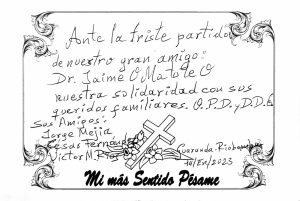 Ante la triste partida
de nuestro gran amigo:
Dr. Jaime O Matute O
nuestra solidaridad con sus
queridos familiares. Q.P.D. y D.D.E
Sus Amigos:
Jorge Mejía
César Fernando
Victor M. Ríos
Guaranda - Riobamba
10/En/2023
Mi más Sentido Pésame